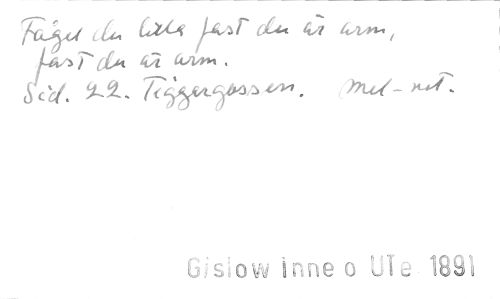 Fågel du lilla fast du är arm,
fast du är arm.
Sid. 22. Tiggargossen. Mel-not.
Gislow Inne o Ute 1891